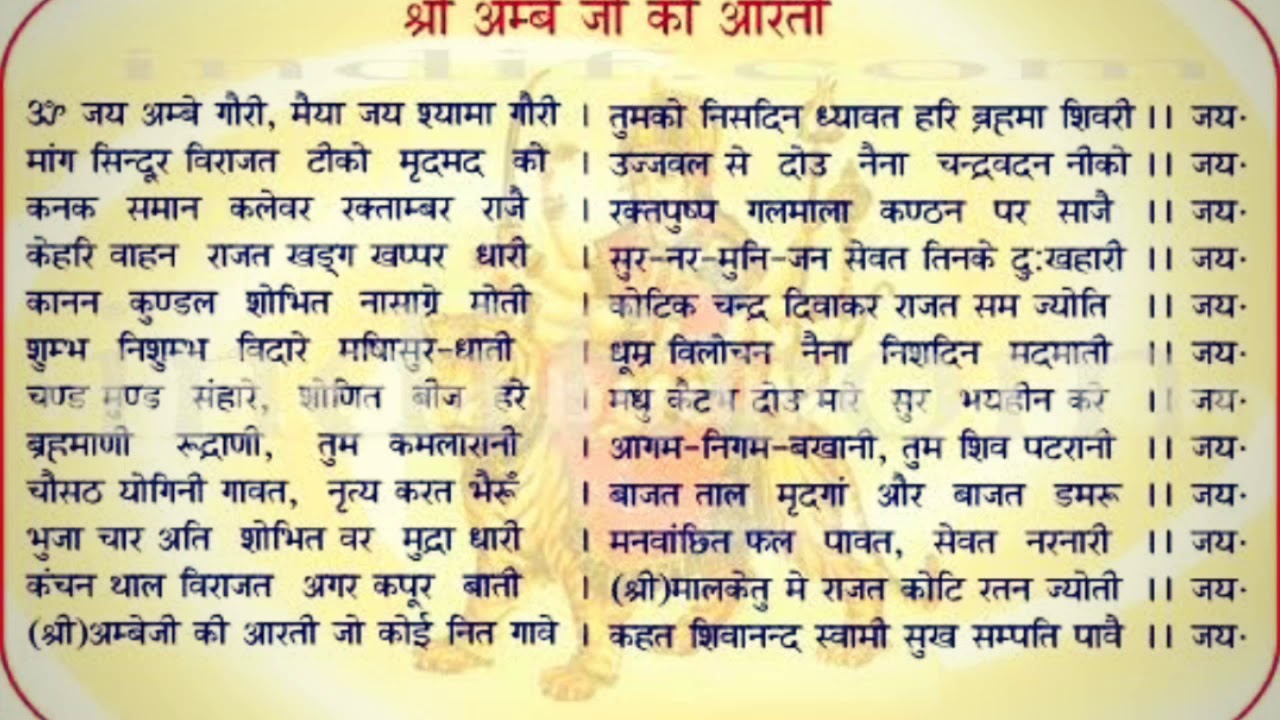 श्री अम्बे जी की आरती
indif.com
ॐ जय अम्बे गौरी, मैया जय श्यामा गौरी । तुमको निसदिन ध्यावत हरि ब्रहमा शिवरी ।। जय·
मांग सिन्दूर विराजत टीको मृदमद की । उज्जवल से दोउ नैना चन्द्रवदन नीको ।। जय·
कनक समान कलेवर रक्ताम्बर राजै । रक्तपुष्प गलमाला कण्ठन पर साजै ।। जय·
केहरि वाहन राजत खड्ग खप्पर धारी । सुर-नर-मुनि-जन सेवत तिनके दुःखहारी ।। जय·
कानन कुण्डल शोभित नासाग्रे मोती । कोटिक चन्द्र दिवाकर राजत सम ज्योति ।। जय·
शुम्भ निशुम्भ विदारे मषिासुर-धाती । धूम्र विलोचन नैना निशदिन मदमाती ।। जय·
चण्ड मुण्ड संहारे, शोणित बीज हरे । मधु कैटभ दोउ मारे सुर भयहीन करे ।। जय·
ब्रहमाणी रूद्राणी, तुम कमलारानी । आगम-निगम-बखानी, तुम शिव पटरानी ।। जय·
चौसठ योगिनी गावत, नृत्य करत भैरूँ । बाजत ताल मृदगां और बाजत डमरू ।। जय·
भुजा चार अति शोभित वर मुद्रा धारी । मनवांछित फल पावत, सेवत नरनारी ।। जय·
कंचन थाल विराजत अगर कपूर बाती । (श्री)मालकेतु मे राजत कोटि रतन ज्योती ।। जय·
(श्री)अम्बेजी की आरती जो कोई नित गावे । कहत शिवानन्द स्वामी सुख सम्पति पावै ।। जय·